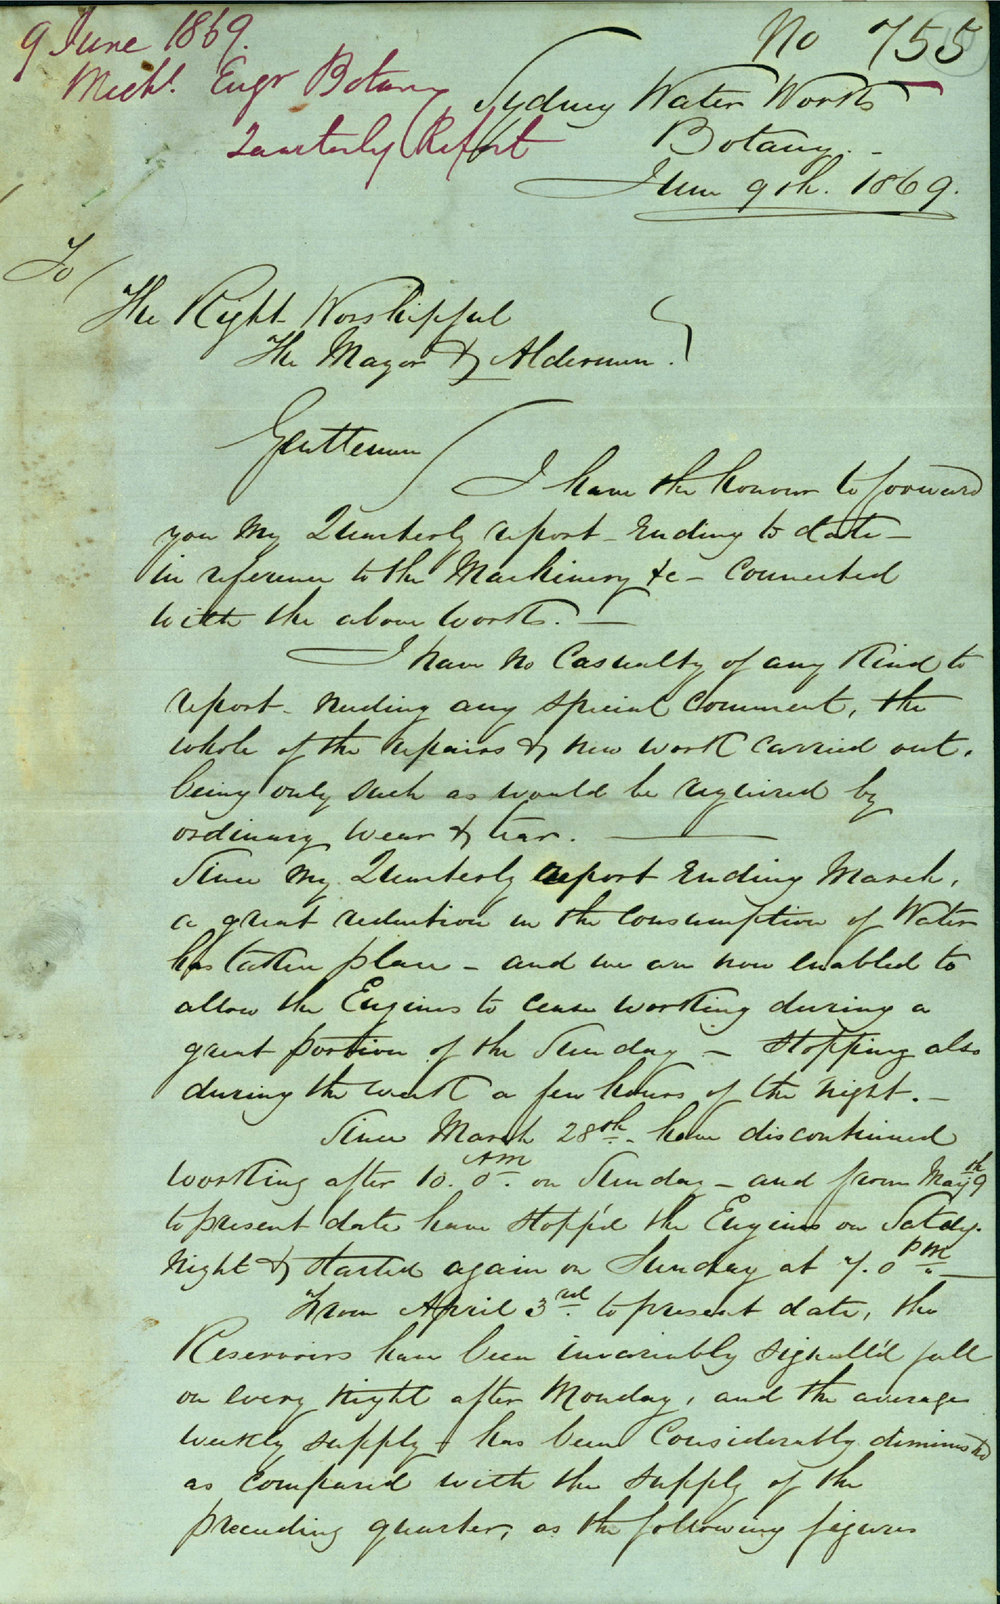 9 June 1869.
Mechl. Engr Botany
Quarterly Report
No 755
Sydney Water Works
Botany.
June 9th. 1869.
To/
The Right Worshipful
The Mayor & Aldermen.
Gentlemen
I have the honour to forward
you my Quarterly report - Ending to date -
in reference to the Machinery &c - Connected
with the above works. -
I have no Casualty of any kind to
report - needing any special Comment, the
whole of the repairs & new work carried out.
being only such as would be required by
ordinary wear & tear.
Since my Quarterly report Ending March,
a great reduction in the Consumption of Water
has taken place - and we are now enabled to
allow the Engines to cease working during a
great portion of the Sunday - stopping also
during the week a few hours of the night. -
Since March 28th - have discontinued
working after 10.0 AM on Sunday - and from May 9th
to present date have stopp'd the Engines on Satdy.
Night & started again on Sunday at 7.0 PM. -
From April 3rd to present date, the
Reservoirs have been invariably signall'd full
on every night after Monday, and the average
weekly supply has been Considerably diminished
as compared with the supply of the
preceeding quarter, as the following figures